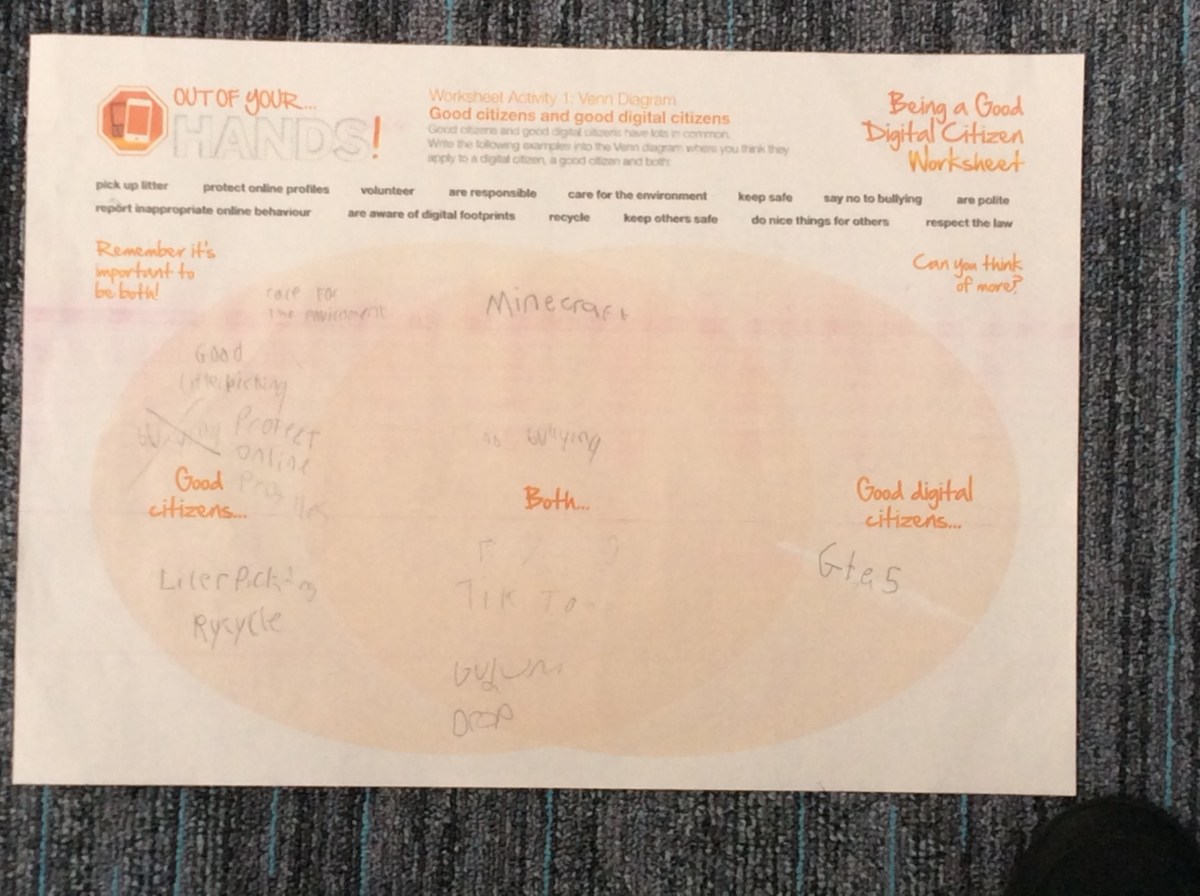 OUT OF YOUR...
HANDS!
Worksheet Activity 1: Venn Diagram
Good citizens and good digital citizens
Good citizens and good digital citizens have lots in common.
Write the following examples into the Venn diagram where you think they
apply to a digital citizen, a good citizen and both:
Being a Good
Digital Citizen
Worksheet
pick up litter protect online profiles volunteer are responsible care for the environment keep safe say no to bullying are polite
report inappropriate online behaviour are aware of digital footprints recycle keep others safe do nice things for others respect the law
Remember it's
important to
be both!
Can you think
of more?
care for
Minecraft
Good
Protect
Online
bullying
Good
citizens...
Both...
Good digital
citizens...
Gta5
Liter Picking
Rycycle
Tik To
Drop